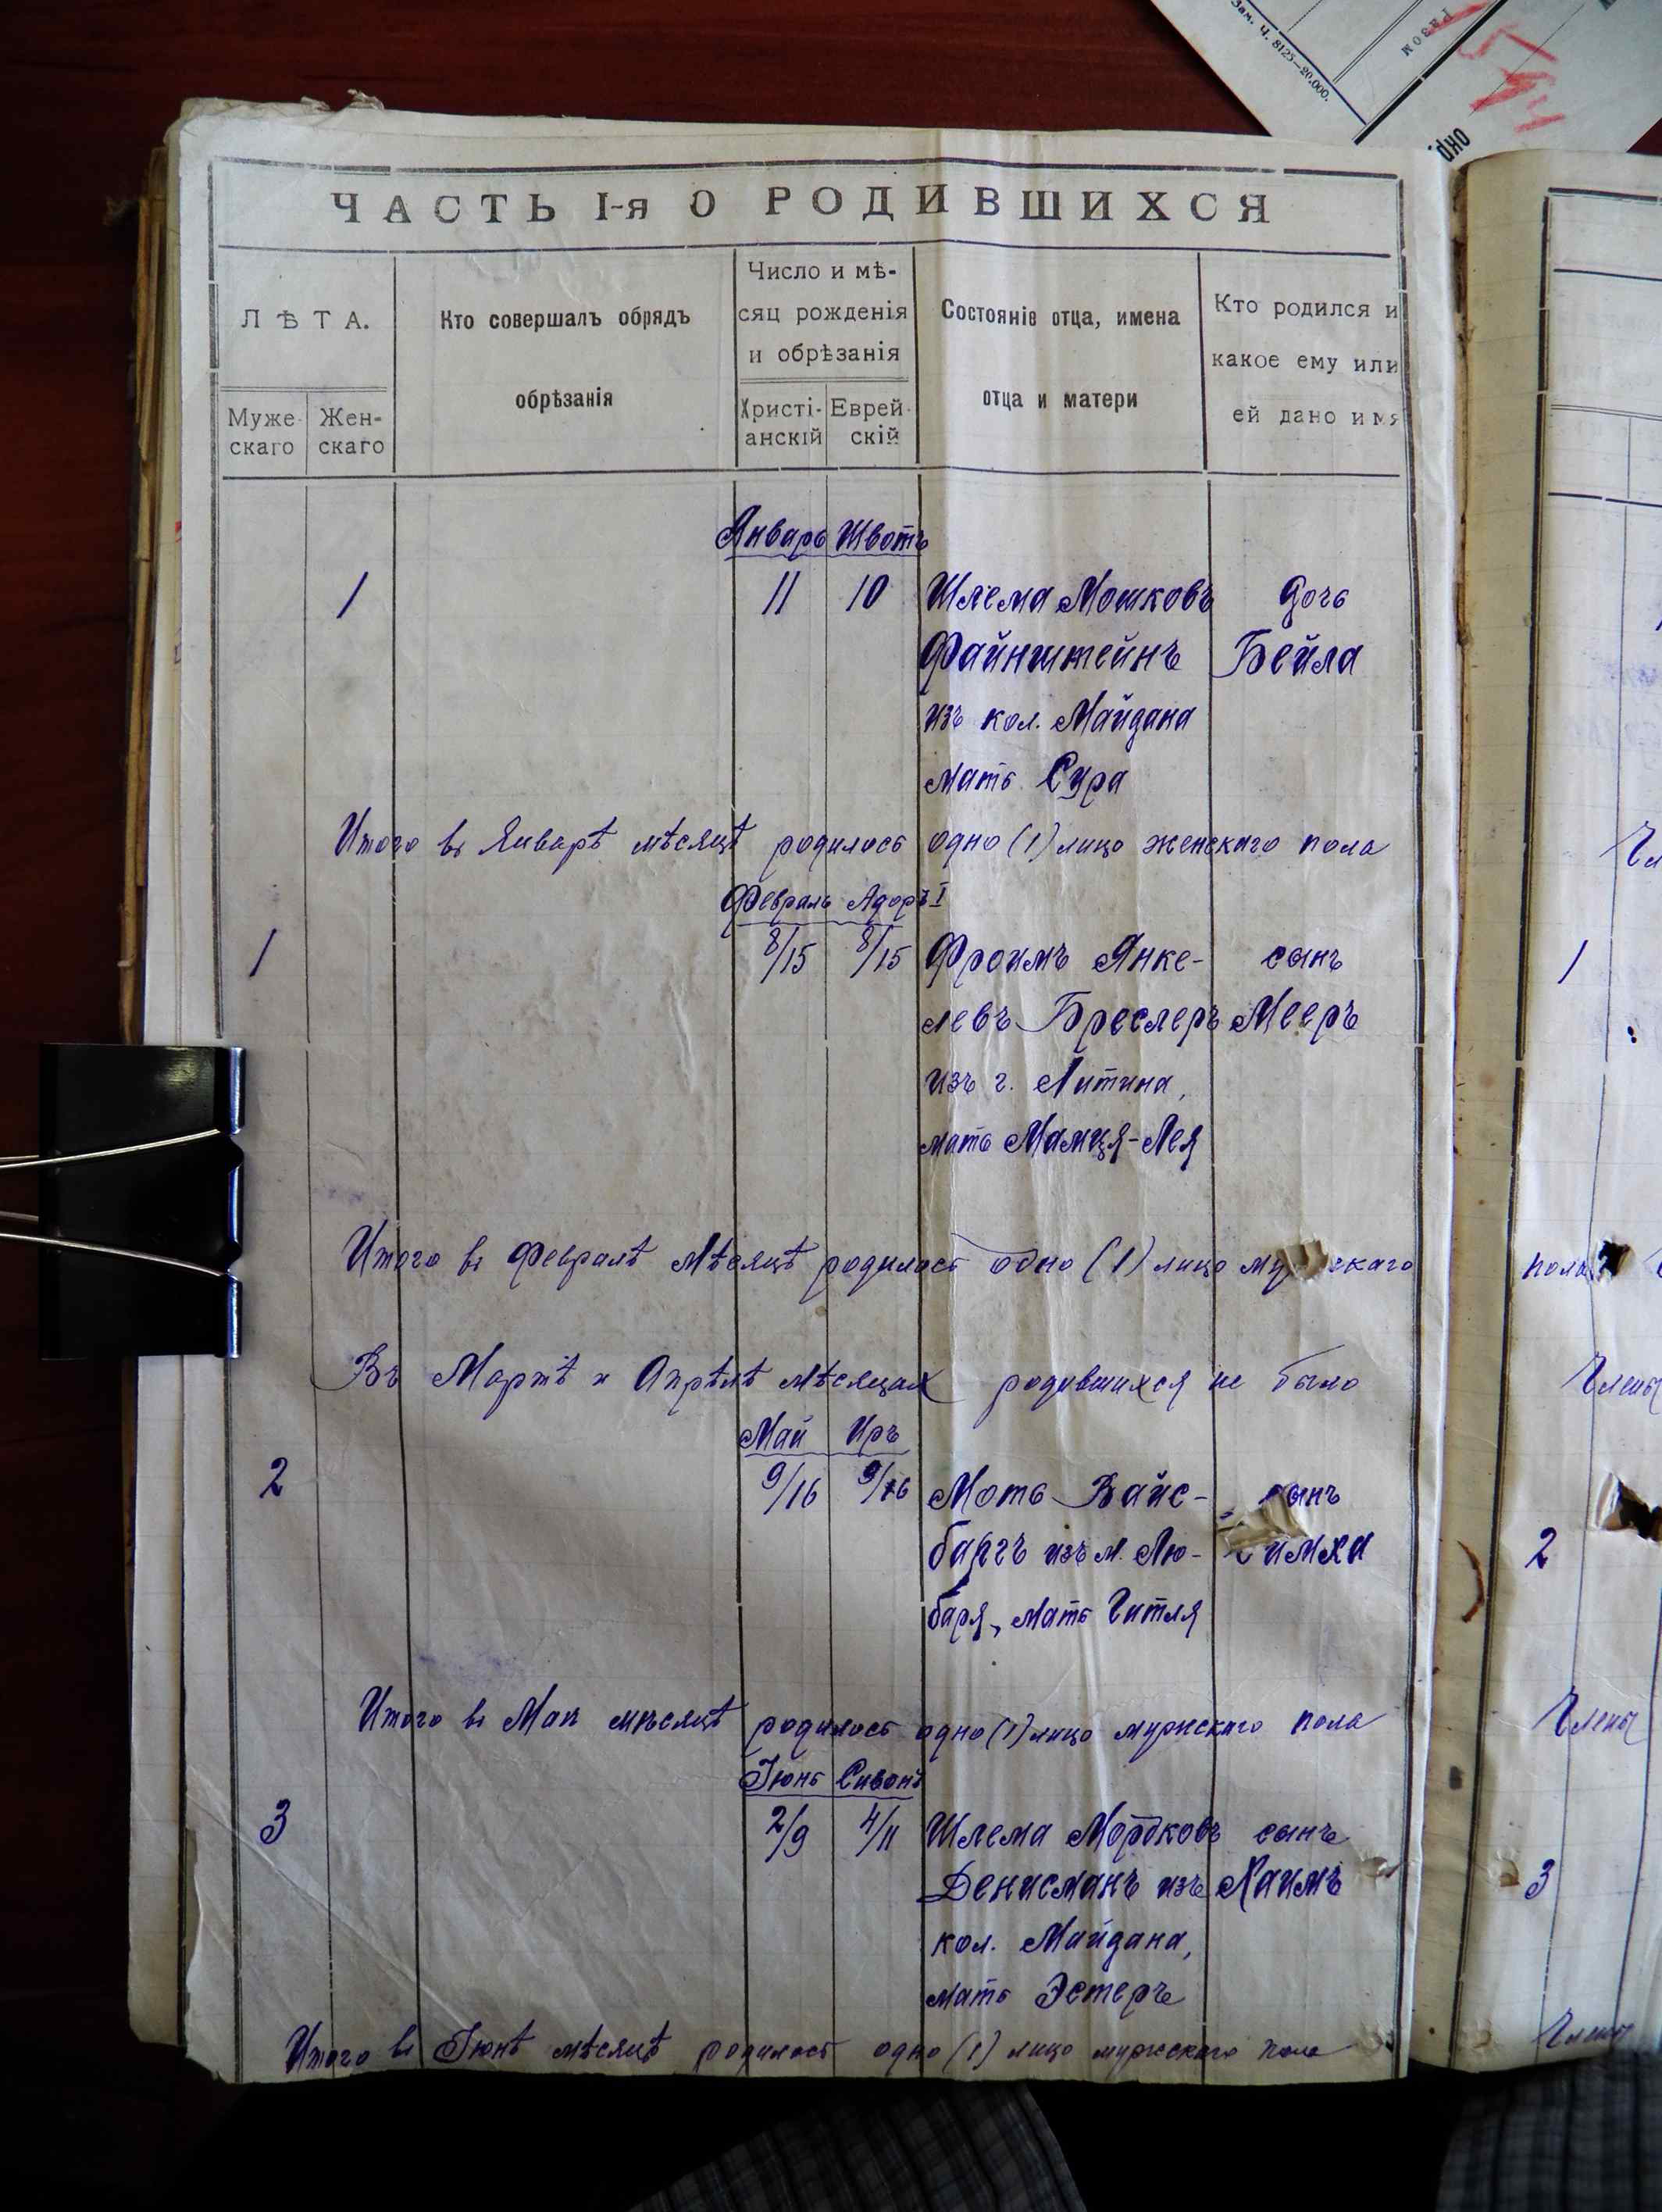 Зам. Ч. 8125—20.000.
Разом
окр.
ЧАСТЬ I-я О РОДИВШИХСЯ
ЛѢТА.
Муже-
скаго
Жен-
скаго
Кто совершалъ обрядъ
обрѣзанія
Число и мѣ-
сяц рожденія
и обрѣзанія
Христі-
анскій
Еврей-
скій
Состояніе отца, имена
отца и матери
Кто родился и
какое ему или
ей дано имя
Январь Швотъ
1 11 10 Шлема Мошковъ дочь
Файнштейнъ Бейла
изъ кол. Майдана
мать Сура
Итого въ Январѣ мѣсяцѣ родилось одно (1) лицо женскаго пола
Февраль Адоръ I
1 8/15 8/15 Фроимъ Янке- сынъ
левъ Бреслеръ Мееръ
изъ г. Литина,
мать Маниця-Лея
Итого въ Февралѣ мѣсяцѣ родилось одно (1) лицо мужскаго
Въ Мартѣ и Апрѣлѣ мѣсяцах родившихся не было
Май Иръ
2 9/16 9/16 Моть Вайс- сынъ
баргъ изъ м. Лю- Симха
баря, мать Гитля
Итого въ Маѣ мѣсяцѣ родилось одно (1) лицо мужскаго пола
Іюнь Сивонъ
3 2/9 4/11 Шлема Мордковъ сынъ
Денисманъ изъ Хаимъ
кол. Майдана,
мать Эстеръ
Итого въ Іюнѣ мѣсяцѣ родилось одно (1) лицо мужскаго пола
1
пола
Члены
2
Члены
3
Члены